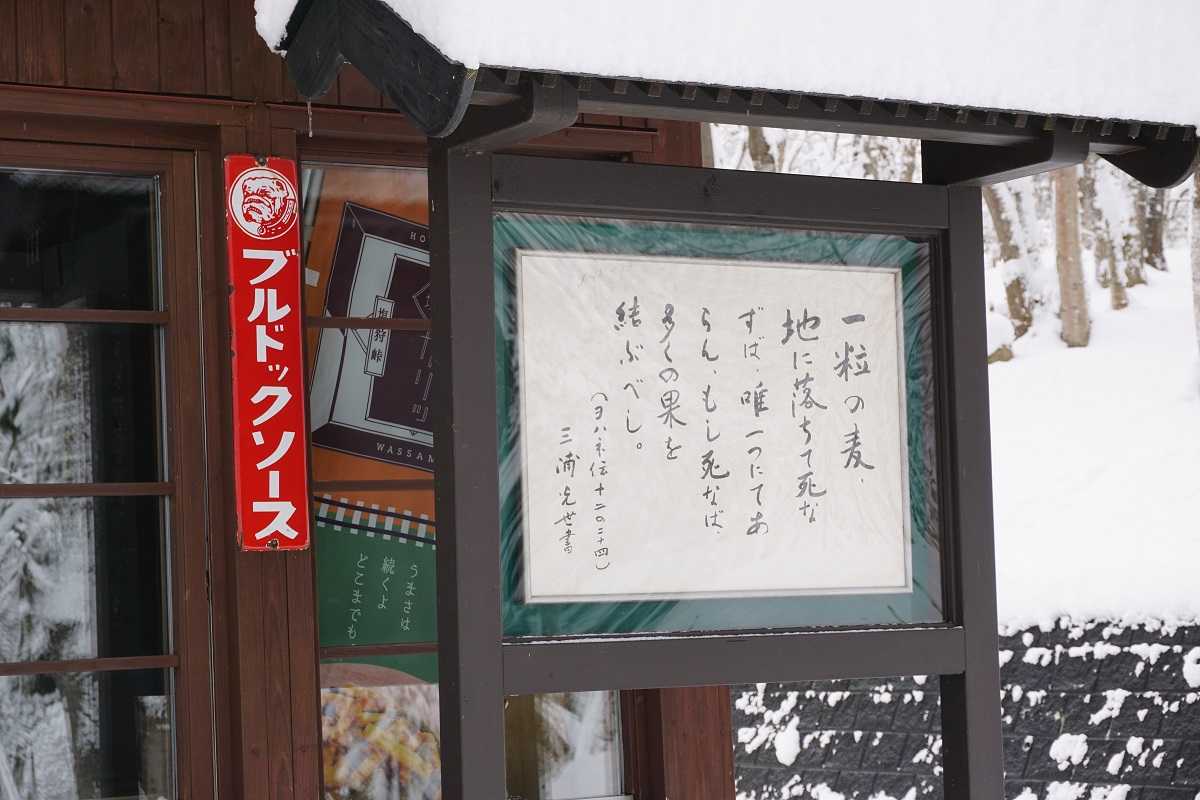 ブルドックソース
HO
塩狩峠
WASSAM
うまさは
続くよ
どこまでも
一粒の麦、
地に落ちて死な
ずば、唯一つにてあ
らん、もし死なば、
多くの果を
結ぶべし。
（ヨハネ伝十二〇二十四）
三浦光世書